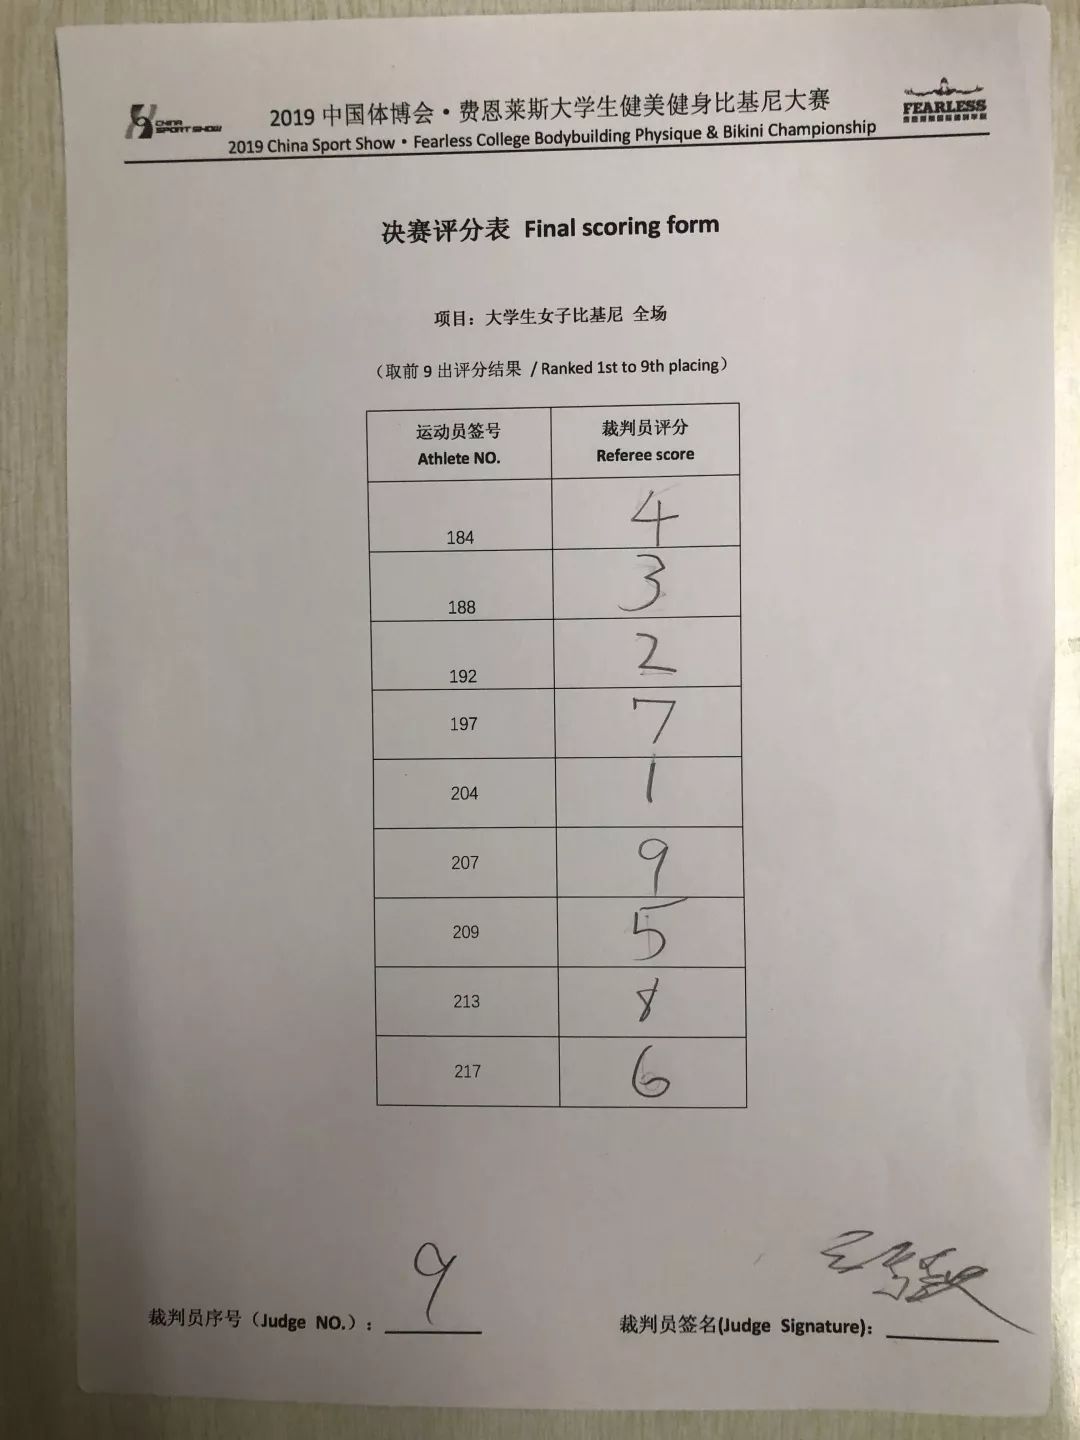 CHINA
SPORT SHOW
2019 中国体博会·费恩莱斯大学生健美健身比基尼大赛
FEARLESS
2019 China Sport Show • Fearless College Bodybuilding Physique & Bikini Championship
决赛评分表 Final scoring form
项目：大学生女子比基尼 全场
（取前 9 出评分结果 / Ranked 1st to 9th placing）
运动员签号 裁判员评分
Athlete NO. Referee score
184 4
188 3
192 2
197 7
204 1
207 9
209 5
213 8
217 6
裁判员序号（Judge NO.）: 9
裁判员签名(Judge Signature):